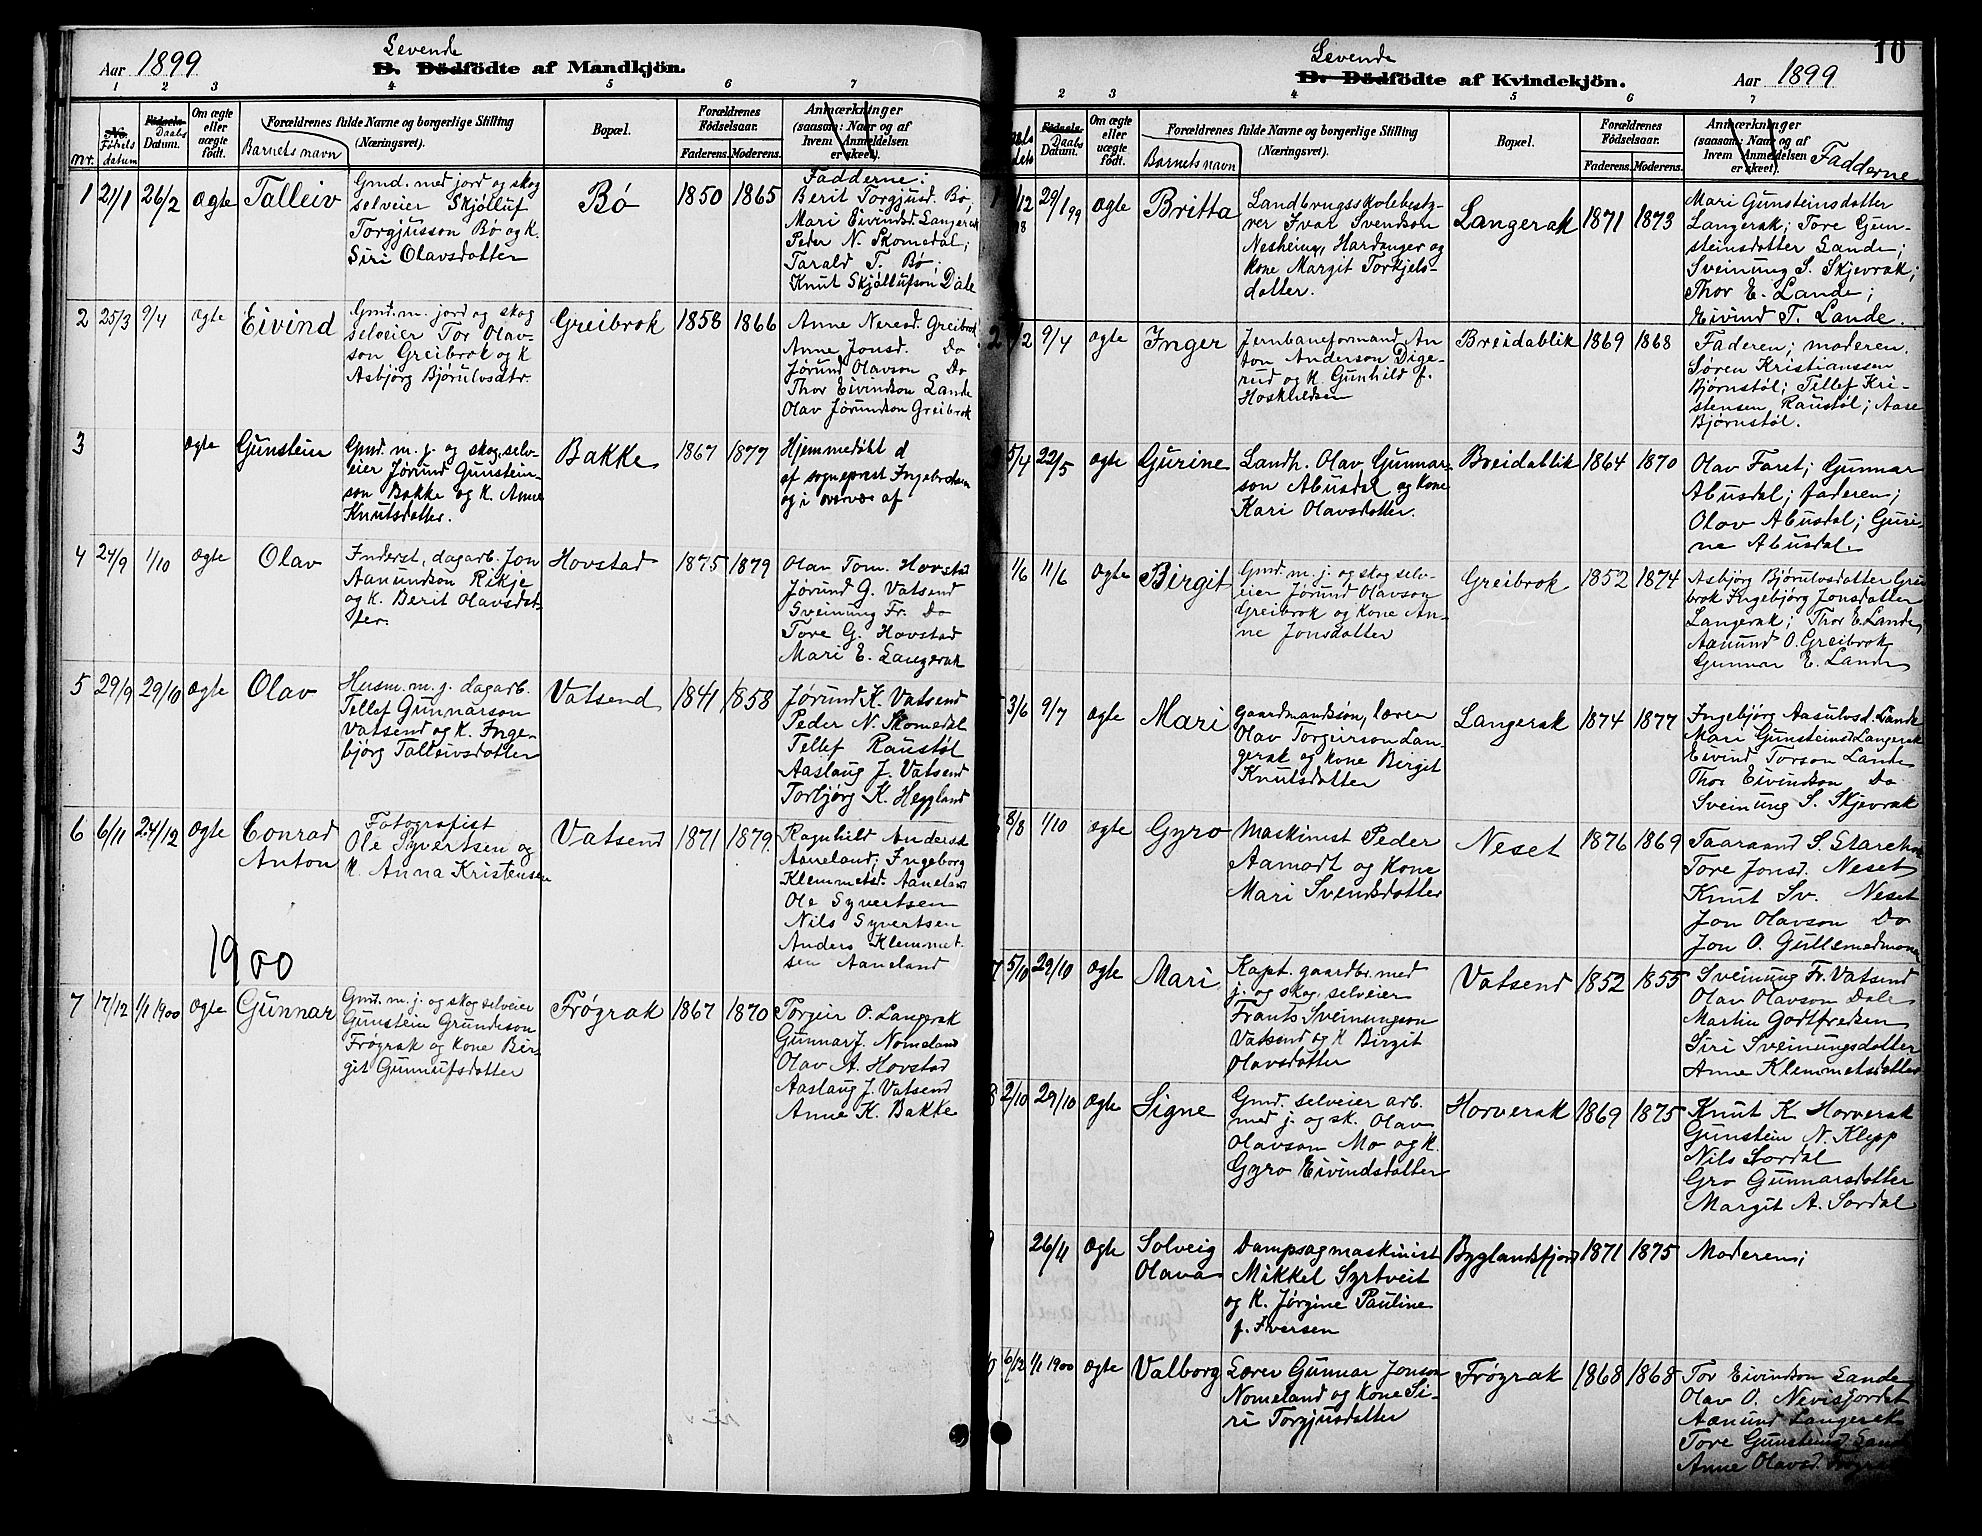 Aar 1899
Levende
B. Dödfödte af Mandkjön.
1 2 3 4 5 6 7
No. Födsels Datum. Om ægte eller uægte födt. Forældrenes fulde Navne og borgerlige Stilling (Næringsvei). Bopæl. Forældrenes Födselsaar. Faderens. Moderens. Anmærkninger (saasom: Naar og af hvem Anmeldelsen er skeet).
nr. Daabs Barnets navn
Fadderne:
1 21/1 26/2 ægte Talleiv
Gmd. med jord og skog
selveier Skjølluf
Torgjusson Bø og K.
Siri Olavsdotter
Bø 1850 1865
Berit Torgjusd. Bø,
Mari Eivindsd. Langerak
Peder N. Skomedal;
Tarald T. Bø;
Knut Skjøllufson Dale
2 25/3 9/4 ægte Eivind
Gmd. m. jord og skog
selveier Tor Olav-
son Greibrok og K
Asbjörg Bjørulvsdtr.
Greibrok 1858 1866
Anne Neresd. Greibrok
Anne Jonsd. Do
Jørund Olavson Do
Thor Eivindson Lande
Olav Jørundson Greibrok
3 ægte Gunstein
Gmd. m. j. og skog, selv-
eier Jørund Gunstein-
son Bakke og K. Anne
Knutsdatter.
Bakke 1867 1877
Hjemmedøbt d
af sogneprest Ingebretsen
og i overvær af
4 24/9 1/10 ægte Olav
Inderst, dagarb. Jon
Aanundson Rikje
og K. Berit Olavsdot-
ter.
Hovstad 1875 1879
Olav Tom. Hovstad
Jørund G. Vatsend
Sveinung Fr. Do
Tore G. Hovstad
Mari E. Langerak
5 29/9 29/10 ægte Olav
Husm. m. j. dagarb.
Tellef Gunnarson
Vatsend og K. Inge-
bjørg Talleivsdotter
Vatsend 1841 1858
Jørund K. Vatsend
Peder N. Skomedal
Tellef Raustøl
Aaslaug J. Vatsend
Torbjørg K. Heggland
6 6/11 24/12 ægte Conrad
Anton
Fotografist
Ole Syvertsen og
K. Anna Kristensen
Vatsend 1871 1879
Ragnhild Andersd.
Aaneland; Ingeborg
Klemmetsd. Aaneland
Ole Syvertsen
Nils Syvertsen
Anders Klemmet-
sen Aaneland
1900
7 17/12 1/1 1900 ægte Gunnar
Gmd. m. j. og skog selveier
Gunstein Grundeson
Frøgrak og Kone Bir-
git Gunnufsdotter
Frøgrak 1867 1870
Torgeir O. Langerak
Gunnar J. Nomeland
Olav A. Hovstad
Aaslaug J. Vatsend
Anne K. Bakke
10
Levende
B. Dödfödte af Kvindekjön.
Aar 1899
2 3 4 5 6 7
Födsels Datum. Om ægte eller uægte födt. Forældrenes fulde Navne og borgerlige Stilling (Næringsvei). Bopæl. Forældrenes Födselsaar. Faderens. Moderens. Anmærkninger (saasom: Naar og af hvem Anmeldelsen er skeet).
Daabs Barnets navn Fadderne
1 /12 98 29/1 99 ægte Britta
Landbrugsskolebesty-
rer Ivar Svendson
Nesheim, Hardanger og
kone Margit Torkjels-
dotter.
Langerak 1871 1873
Mari Gunsteinsdotter
Langerak; Tore Gun-
steinsdotter Lande;
Sveinung S. Skjevrak;
Thor E. Lande;
Eivind T. Lande.
2 /2 9/4 ægte Inger
Jernbaneformand An-
ton Anderson Dige-
rud og K. Gunhild f.
Hoskuldsen
Breidablik 1869 1868
Faderen; moderen.
Søren Kristianssen
Bjørnstøl; Tellef Kri-
stensen Raustøl; Aase
Bjørnstøl.
5/4 22/5 ægte Gurine
Landh. Olav Gunnar-
son Abusdal og kone
Kari Olavsdotter.
Breidablik 1864 1870
Olav Faret; Gunnar
Abusdal; faderen;
Olav Abusdal; Guri-
ne Abusdal.
1/6 11/6 ægte Birgit
Gmd. m. j. og skog selv-
eier Jørund Olavson
Greibrok og kone An-
ne Jonsdotter
Greibrok 1852 1874
Asbjörg Bjørulvsdotter Grei
brok Ingebjørg Jonsdotter
Langerak; Thor E. Lande
Aanund O. Greibrok
Gunnar E. Lande
3/6 9/7 ægte Mari
Gaardmandssön, lærer
Olav Torgeirson Lan-
gerak og kone Birgit
Knutsdotter
Langerak 1874 1877
Ingebjörg Aasulvsd. Lande
Mari Gunsteinsd. Langerak
Eivind Torson Lande
Thor Eivindson Do
Sveinung S. Skjevrak
8/8 1/10 ægte Gyro
Maskinist Peder
Aamodt og kone
Mari Svendsdotter
Neset 1876 1869
Taaraand S.
Tore Jonsd. Neset
Knut Sv. Neset
Jon Olavson Do
Jon O. Gullesmedmoen
7 5/10 29/10 ægte Mari
Kapt. gaardbr. med
j. og skog, selveier
Frants Sveinungson
Vatsend og K Birgit
Olavsdotter
Vatsend 1852 1855
Sveinung Fr. Vatsend
Olav Olavson Dale
Martin Godtfredsen
Siri Sveinungsdotter
Anne Klemmetsdotter
8 2/10 29/10 ægte Signe
Gmd. selveier arb.
med j. og sk. Olav
Olavson Mo og K.
Gyro Eivindsdotter
Horverak 1869 1875
Knut K Horverak
Gunstein N. Klepp
Nils Sordal
Gro Gunnarsdotter
Margit A. Sordal
9 26/11 ægte Solveig
Olava
Dampsagmaskinist
Mikkel Syrtveit
og K. Jørgine Pauline
f. Iversen
Byglandsfjord 1871 1875
Moderen;
6/12 1/1 1900 ægte Valborg
Lærer Gunnar Jonson
Nomeland og kone Si-
ri Torgjusdotter
Frøgrak 1868 1868
Tor Eivindson Lande
Olav O. Nevisjordet
Aanund Langerak
Tore Gunsteinsd. Lande
Anne Olavsd.